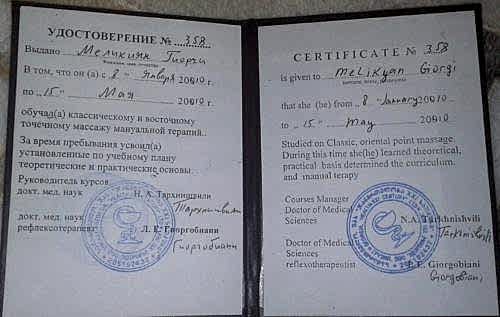 УДОСТОВЕРЕНИЕ № 358
Выдано Меликян Гиорги
В том, что он (а) с 8 " Января 20010 г.
по " 15 " Мая 20010 г.
обучал(а) классическому и восточному
точечному массажу мануальной терапий.
За время пребывания усвоил(а)
установленные по учебному плану
теоретические и практические основы.
Руководитель курсов
докт. мед. наук Н. А. Тархнишвили
Тархнишвили
докт. мед. наук
рефлексотерапевт Л. Е. Гиоргобиани
Гиоргобиани
CERTIFICATE № 358
is given to Melikyan Giorgi
that she (he) from " 8 " January 20010
to " 15 " May 20010
Studied on Classic, oriental point massage.
During this time she(he) learned theoretical,
practical basis determined the curriculum.
and manual terapy
Courses Manager
Doctor of Medical
Sciences N.A. Tarkhnishvili
Tarkhnishvili
Doctor of Medical
Sciences
reflexotherapeutist L.E. Giorgobiani
Giorgobiani